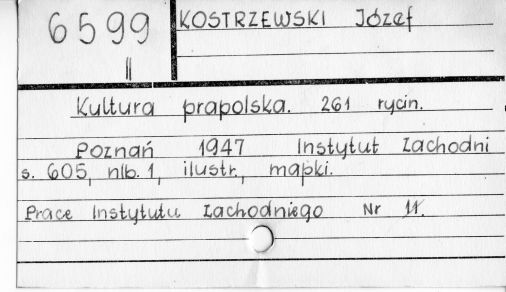 6599
II
KOSTRZEWSKI Józef
Kultura prapolska. 261 rycin.
Poznań 1947 Instytut Zachodni
s. 605, nlb. 1, ilustr., mapki.
Prace Instytutu Zachodniego Nr 11.